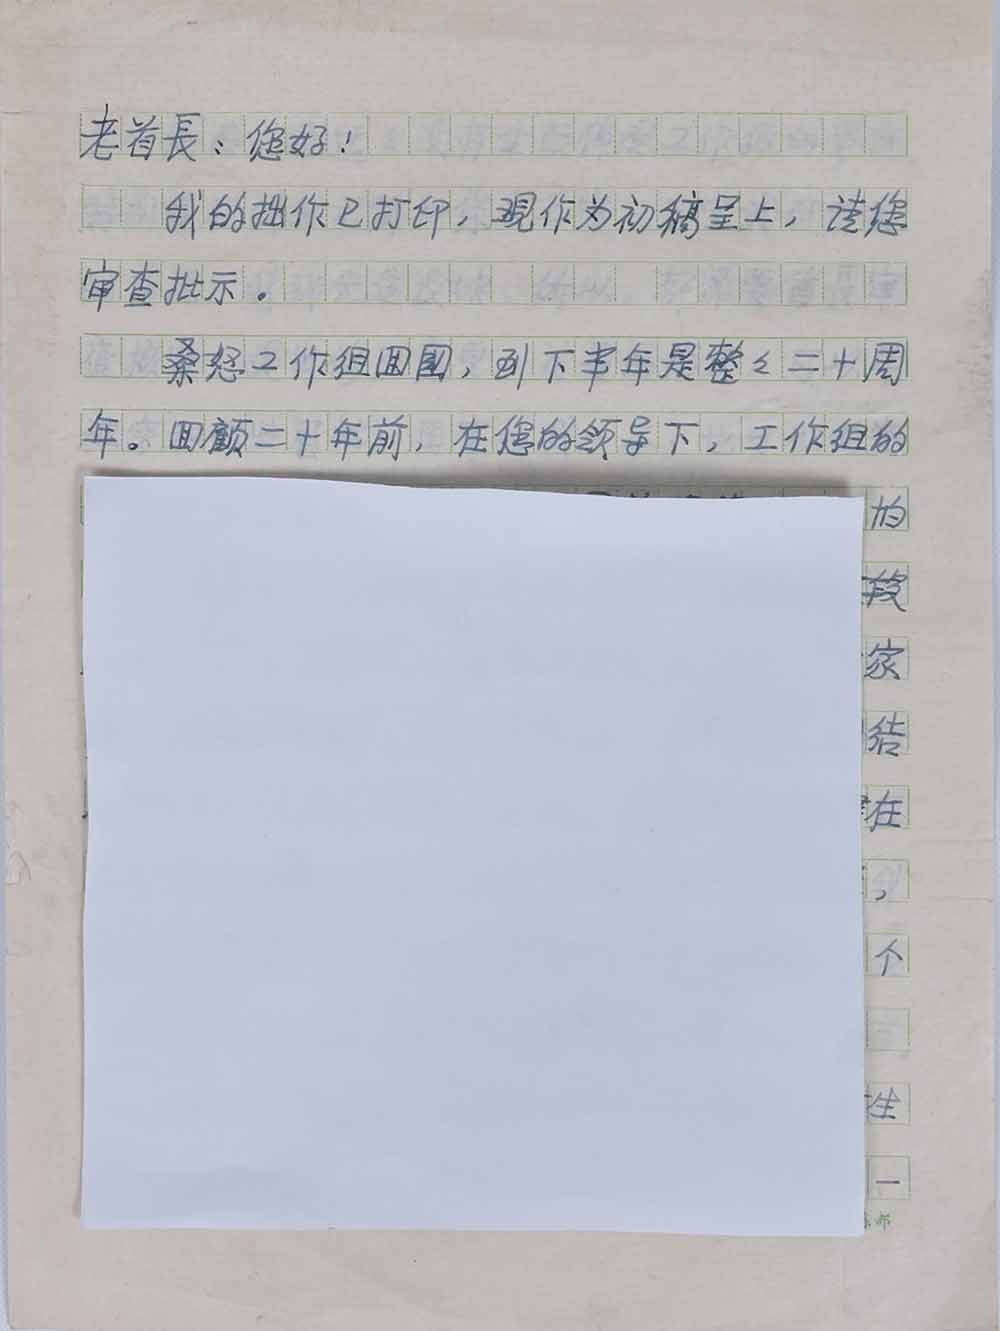 老首長：您好！
我的拙作已打印，现作为初稿呈上，请您
审查批示。
桑怒工作组回国，到下半年是整々二十周
年。回顾二十年前，在您的领导下，工作组的
的
段
家
结
在
，
个
生
一